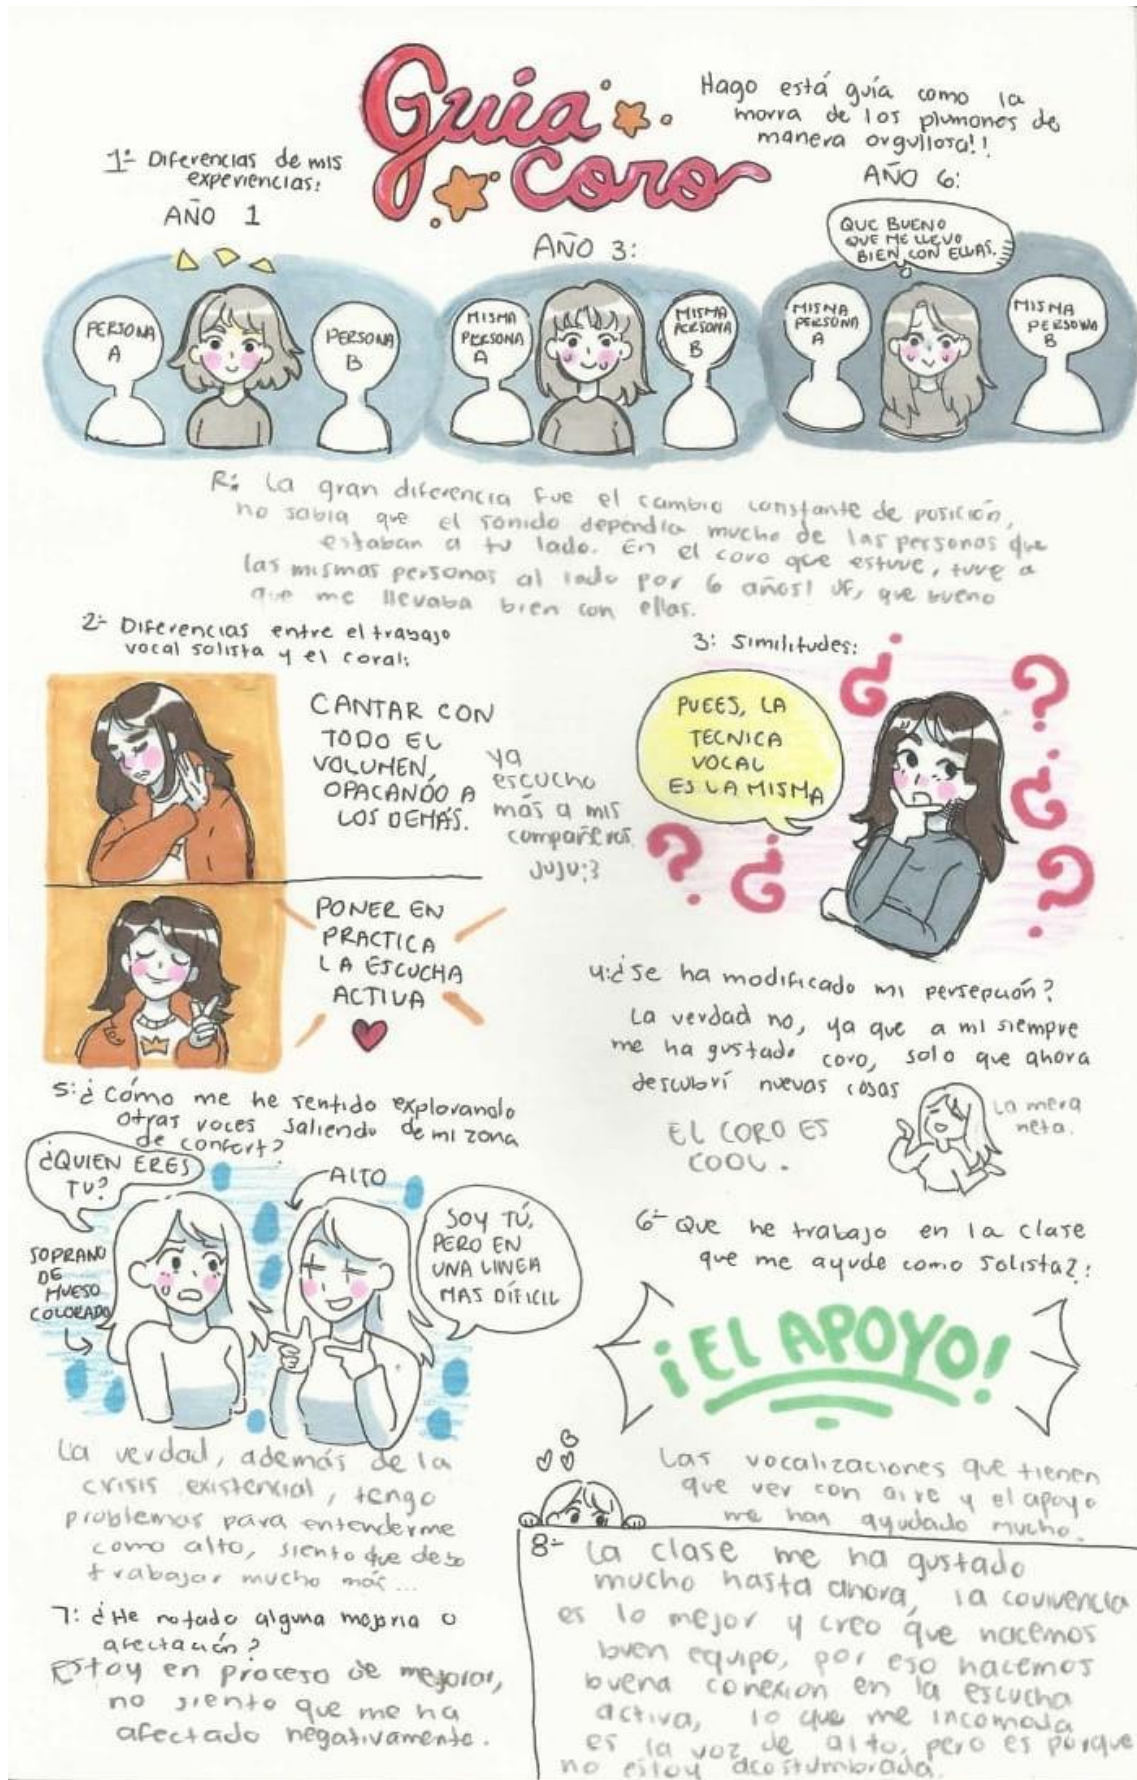 Guía
Coro
Hago está guía como la
morra de los plumones de
manera orgullosa!!
1- Diferencias de mis
experiencias:
AÑO 1
PERSONA
A
PERSONA
B
AÑO 3:
MISMA
PERSONA
A
MISMA
PERSONA
B
AÑO 6:
QUE BUENO
QUE ME LLEVO
BIEN CON ELLAS.
MISMA
PERSONA
A
MISMA
PERSONA
B
R: La gran diferencia fue el cambio constante de posición,
no sabía que el sonido dependía mucho de las personas que
estaban a tu lado. En el coro que estuve, tuve a
las mismas personas al lado por 6 años! Uf, que bueno
que me llevaba bien con ellas.
2- Diferencias entre el trabajo
vocal solista y el coral:
CANTAR CON
TODO EL
VOLUMEN,
OPACANDO A
LOS DEMÁS.
ya
escucho
más a mis
compañeros
juju:3
PONER EN
PRACTICA
LA ESCUCHA
ACTIVA
3: Similitudes:
PUEES, LA
TECNICA
VOCAL
ES LA MISMA
4:¿Se ha modificado mi persepción?
La verdad no, ya que a mi siempre
me ha gustado coro, solo que ahora
descubrí nuevas cosas
EL CORO ES
COOL.
La mera
neta.
5:¿Cómo me he sentido explorando
otras voces saliendo de mi zona
de confort?
¿QUIEN ERES
TU?
SOPRANO
DE
HUESO
COLORADO
ALTO
SOY TÚ,
PERO EN
UNA LINEA
MAS DÍFICIL
La verdad, además de la
crisis existencial, tengo
problemas para entenderme
como alto, siento que debo
trabajar mucho más...
6- Que he trabajo en la clase
que me ayude como solista?:
¡EL APOYO!
Las vocalizaciones que tienen
que ver con aire y el apoyo
me han ayudado mucho.
7: ¿He notado alguna mejoria o
afectación?
Estoy en proceso de mejorar,
no siento que me ha
afectado negativamente.
8- La clase me ha gustado
mucho hasta ahora, la convivencia
es lo mejor y creo que hacemos
buen equipo, por eso hacemos
buena conexion en la escucha
activa, lo que me incomoda
es la voz de alto, pero es porque
no estoy acostumbrada.